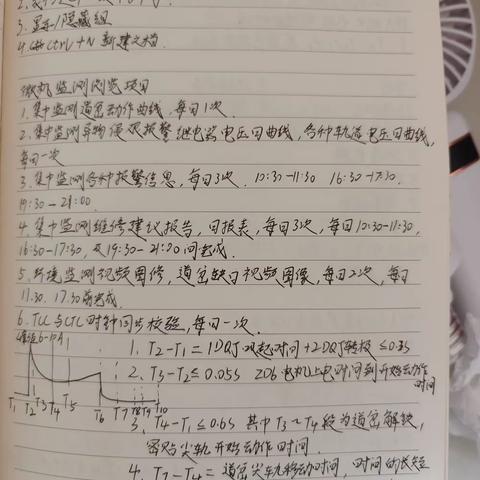 3. 显示/隐藏组
4. Ctrl + N 新建文档.
微机监测浏览项目
1. 集中监测道岔动作曲线,每日1次.
2. 集中监测异物侵限报警继电器电压日曲线,各种轨道电压日曲线,
每日一次
3. 集中监测各种报警信息,每日3次. 10:30-11:30 16:30-17:30.
19:30-21:00.
4. 集中监测维修建议报告,日报表,每日3次,每日10:30-11:30,
16:30-17:30, 及19:30-21:00间完成.
5. 环境监测视频图像,道岔缺口视频图像,每日2次,每日
11:30. 17:30前完成.
6. TCC与CTC时钟同步校验,每日一次.
1. T2-T1 = 1DQJ吸起时间+2DQJ转极 ≤0.3s
2. T3-T2 ≤ 0.05s ZD6电机上电时间到开始动作
时间
T1 T2 T3 T4 T5 T6 T7 T8 T9 T10
3. T4-T1 ≤ 0.6s 其中T3~T4段为道岔解锁,
密贴尖轨开始动作时间.
4. T7-T4 = 道岔尖轨移动时间,时间的长短